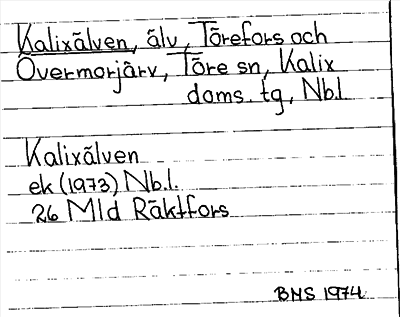 Kalixälven, älv, Törefors och
Övermorjärv, Töre sn, Kalix
doms. tg, Nb.l.
Kalixälven
ek (1973) Nb.l.
26 Mld Räktfors
BHS 1974